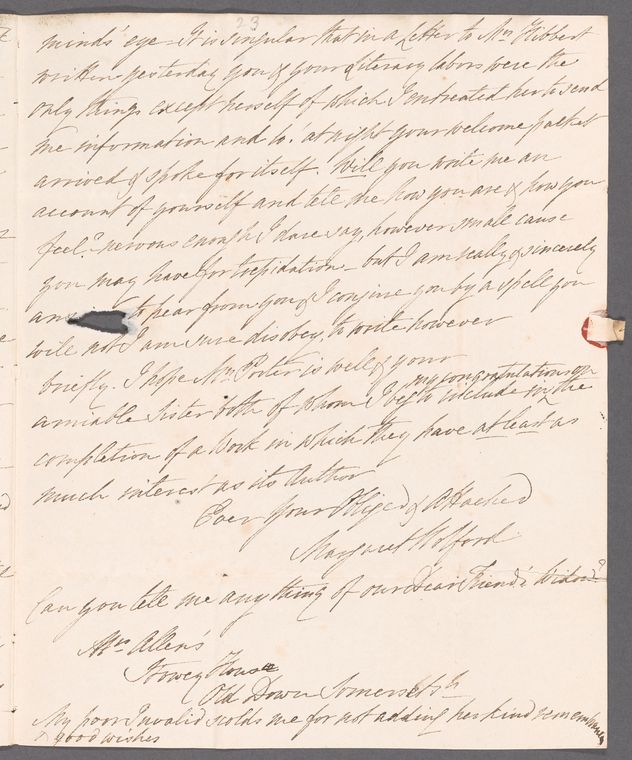 23
minds' eye – It is singular that in a Letter to Mrs Hibbert
written yesterday you & your literary labors were the
only things except herself of which I entreated her to send
me information and lo! at night your welcome packet
arrived & spoke for itself. Will you write me an
account of yourself and tell me how you are & how you
feel? nervous enough I dare say, however small cause
you may have for trepidation – but I am really & sincerely
to hear from you & I conjure you by a spell you
will not I am sure disobey, to write however
briefly. I hope Mrs Porter is well & your
my congratulations on
amiable Sister both of whom I beg to include in the
completion of a Work in which they have at least as
much interest as its Author
Ever Your Obliged & Attached
Margaret Holford
Can you tell me any thing of our Dear Friend's Widow?
Mrs Allen's
House
Old Down Somersetsh
My poor Invalid scolds me for not adding her kind remembrances
& good wishes